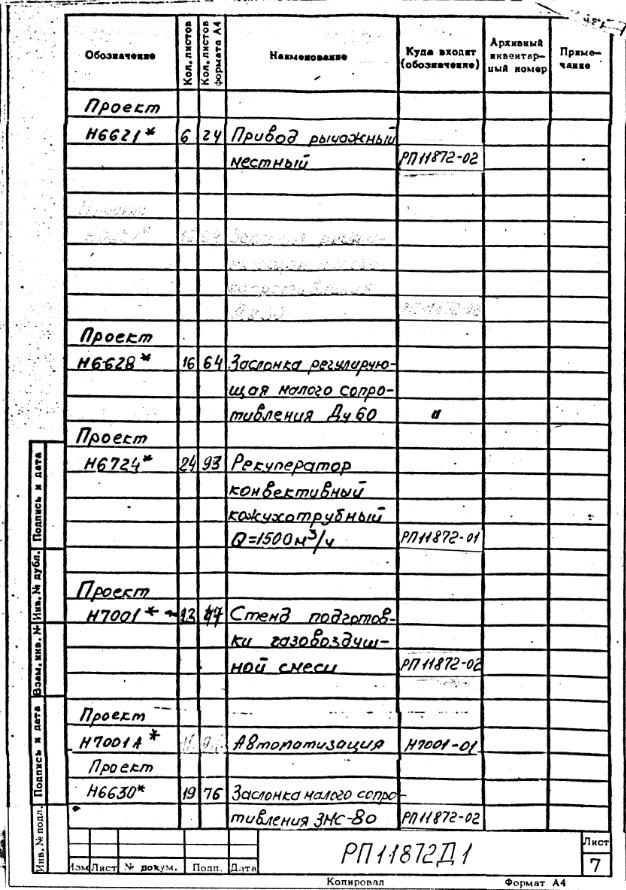 Обозначение Кол. листов Кол. листов формата А4 Наименование Куда входит (обозначение) Архивный инвентарный номер Примечание
Проект
Н6621* 6 24 Привод рычажный
местный РП11872-02
Проект
Н6628* 16 64 Заслонка регулирую-
щая малого сопро-
тивления Ду 60 "
Проект
Н6724* 24 93 Рекуператор
конвективный
кожухотрубный
Q=1500м³/ч РП11872-01
Проект
Н7001* Стенд подготов-
ки газовоздуш-
ной смеси РП11872-02
Проект
Н7001А* Автоматизация Н7001-01
Проект
Н6630* 19 76 Заслонка малого сопро-
тивления ЗМС-80 РП11872-02
РП11872Д1
Лист
7
Изм Лист № докум. Подп. Дата
Копировал Формат А4
Инв. № подл. Подпись и дата Взам. инв. № Инв. № дубл. Подпись и дата